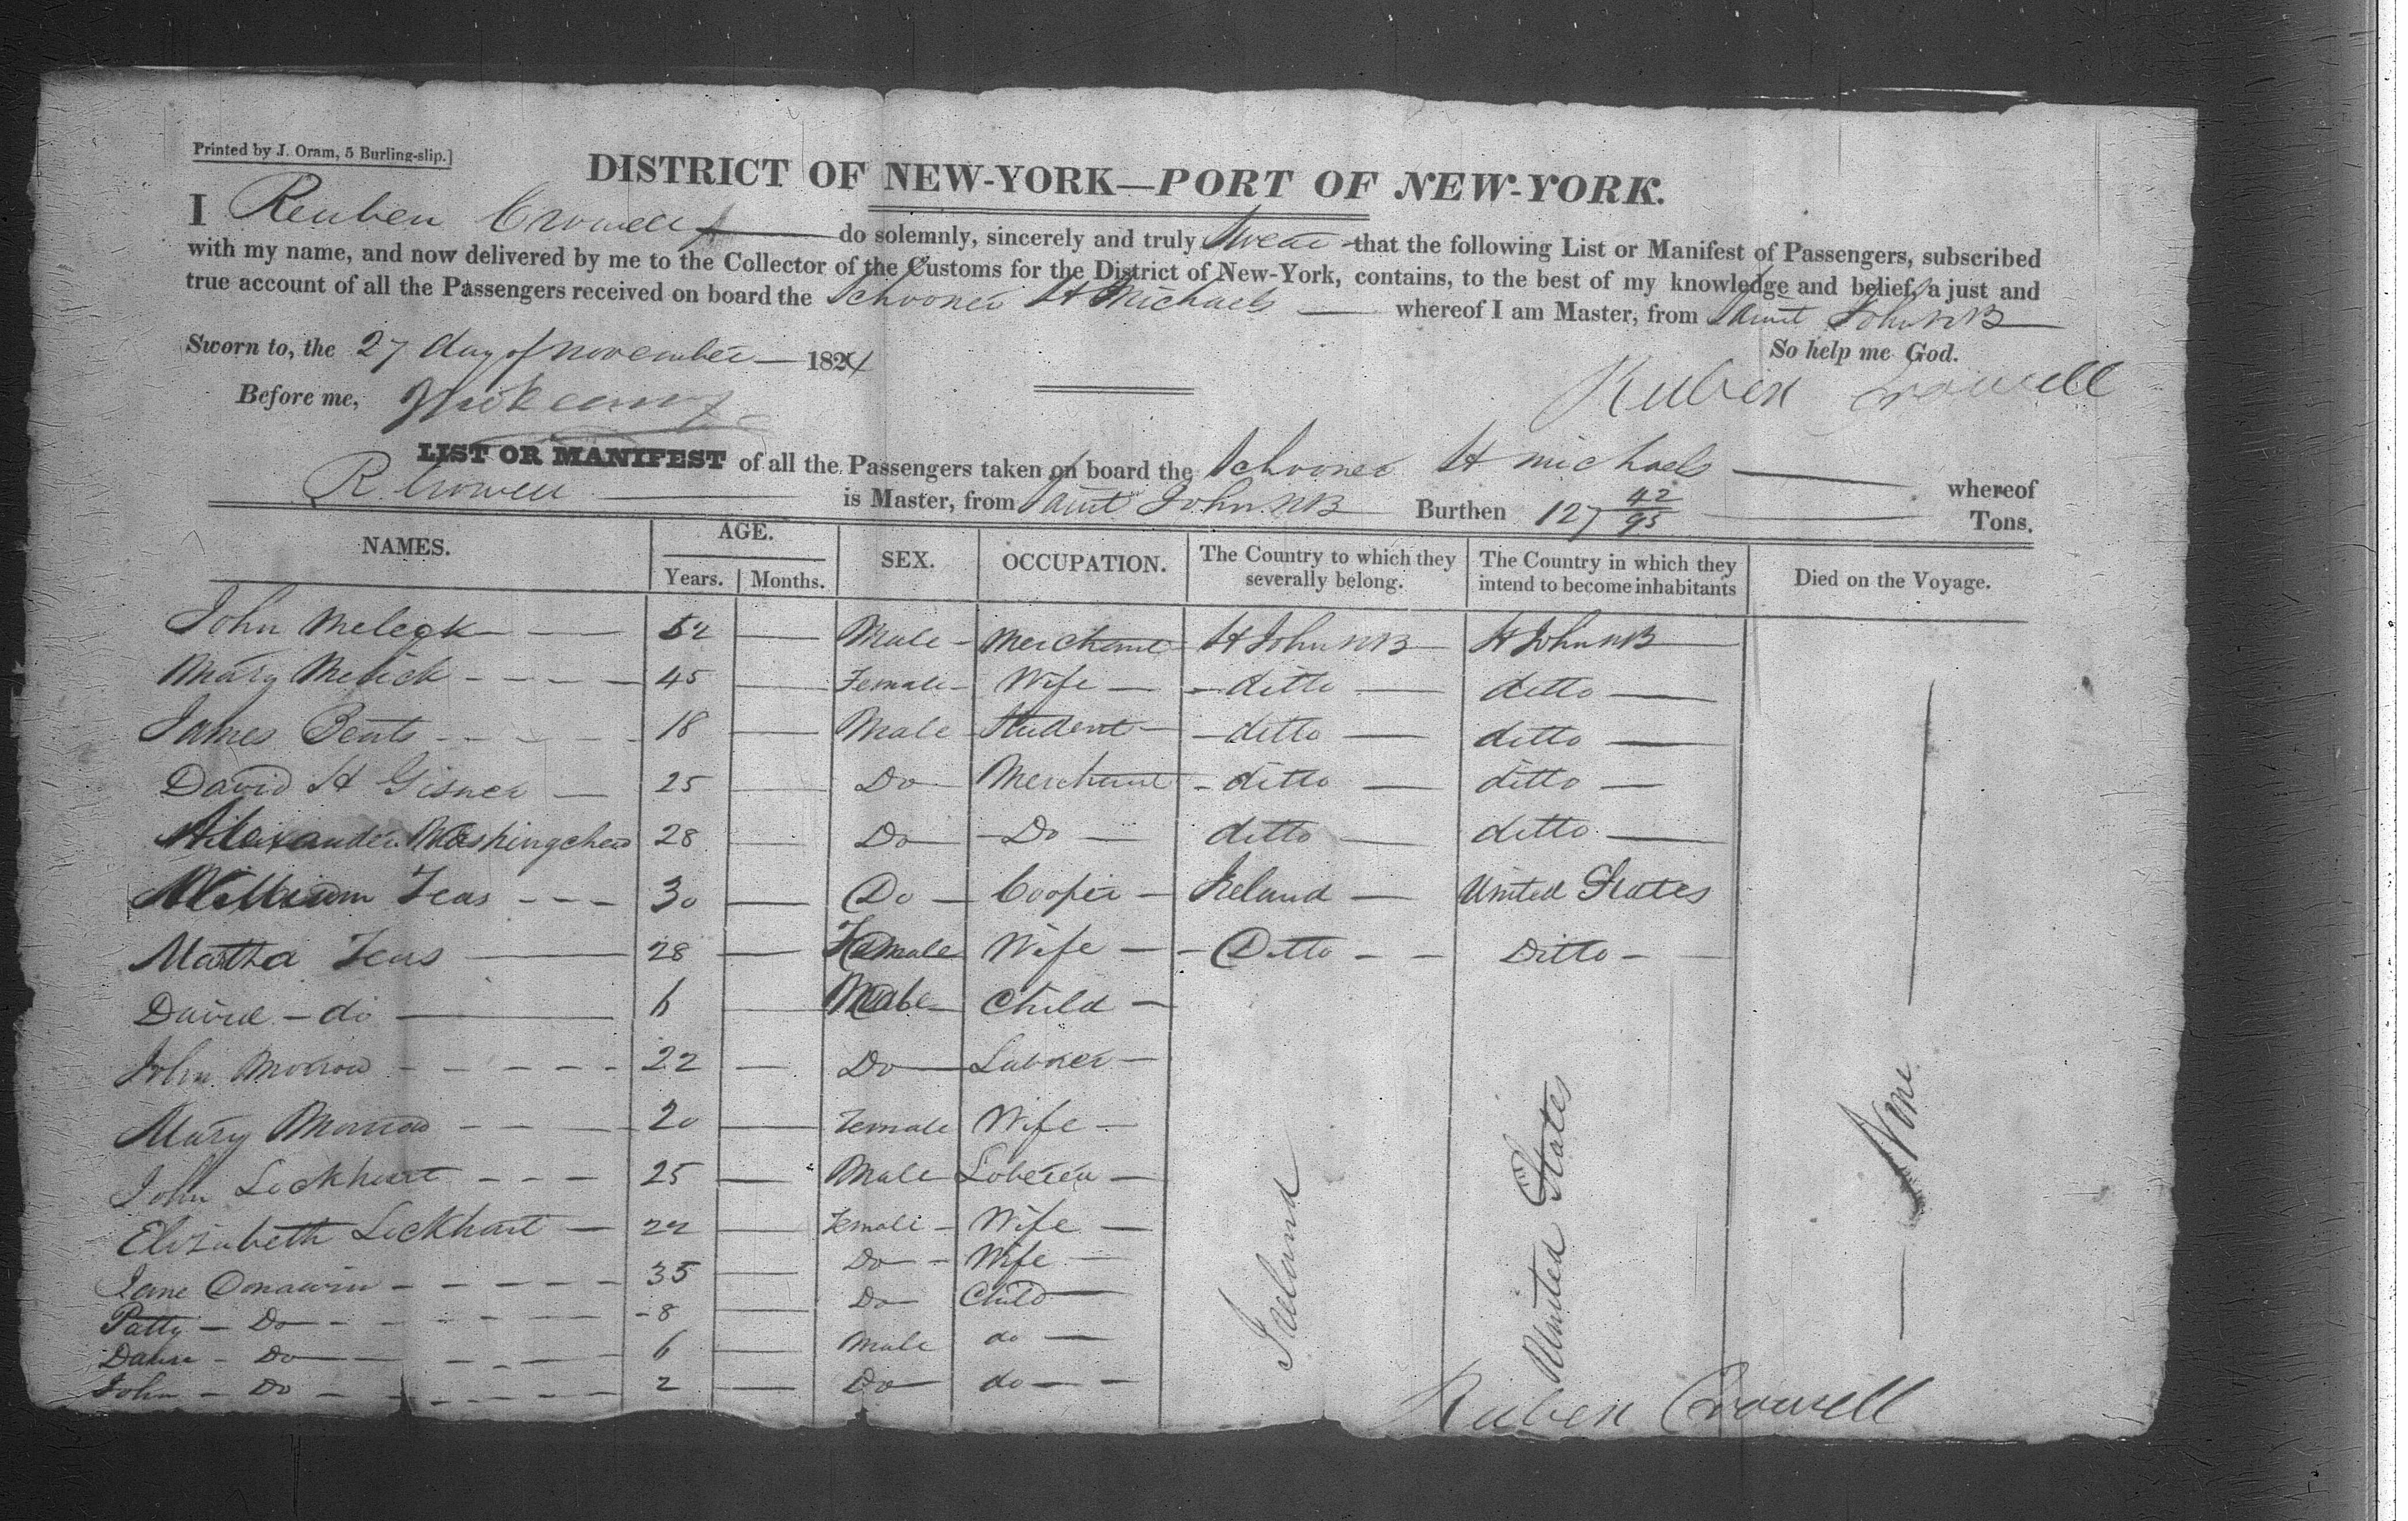 Printed by J. Oram, 5 Burling-slip.]
DISTRICT OF NEW-YORK—PORT OF NEW-YORK.
I Reuben Crowell do solemnly, sincerely and truly Swear that the following List or Manifest of Passengers, subscribed
with my name, and now delivered by me to the Collector of the Customs for the District of New-York, contains, to the best of my knowledge and belief, a just and
true account of all the Passengers received on board the Schooner St Michaels whereof I am Master, from Saint John NB
Sworn to, the 27 day of november 1824 So help me God.
Before me, Reuben Crowell
LIST OR MANIFEST of all the Passengers taken on board the Schooner St michaels whereof
R. Crowell is Master, from Saint John. NB Burthen 127 42/95 Tons.
NAMES. AGE. Years. Months. SEX. OCCUPATION. The Country to which they severally belong. The Country in which they intend to become inhabitants Died on the Voyage.
John Melick 52 Male Merchant St John NB St John NB
Mary Melick 45 Female Wife ditto ditto
James Bents 18 Male Student ditto ditto
David H Gisner 25 Do Merchant ditto ditto
Alexander 28 Do Do ditto ditto
William Teas 30 Do Cooper Ireland United States
Martha Teas 28 Female Wife Ditto Ditto
David do 6 Male Child
John Morrow 22 Do Labrer
Mary Morrow 20 Female Wife
John Lockhart 25 Male
Elizabeth Lockhart 22 Female Wife
Jane 35 Do Wife
Patty Do 8 Do Child
Do 6 Male do
John Do 2 Do do
Ireland
United States
None
Reuben Crowell